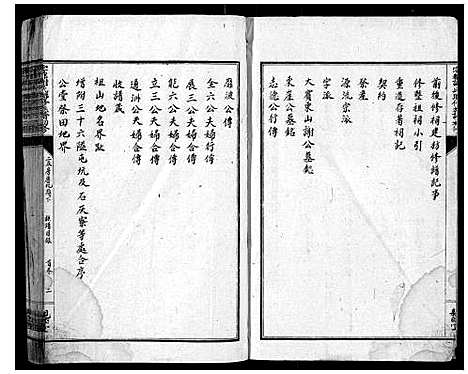 前後修祠建坊修譜記事
修整祖祠小引
重造香著祠記
契約
祭產
源流宗派
字派
大賓東山謝公墓誌
東崖公墓銘
志德公行傳
公傳
全六公夫婦行傳
展三公夫婦合傳
能六公夫婦合傳
立三公夫婦合傳
通洲公夫婦合傳
收請箴
祖山地名界趾
增附三十六隘屯坑及石灰寮等處合序
公堂祭田地界
目錄
首卷
二